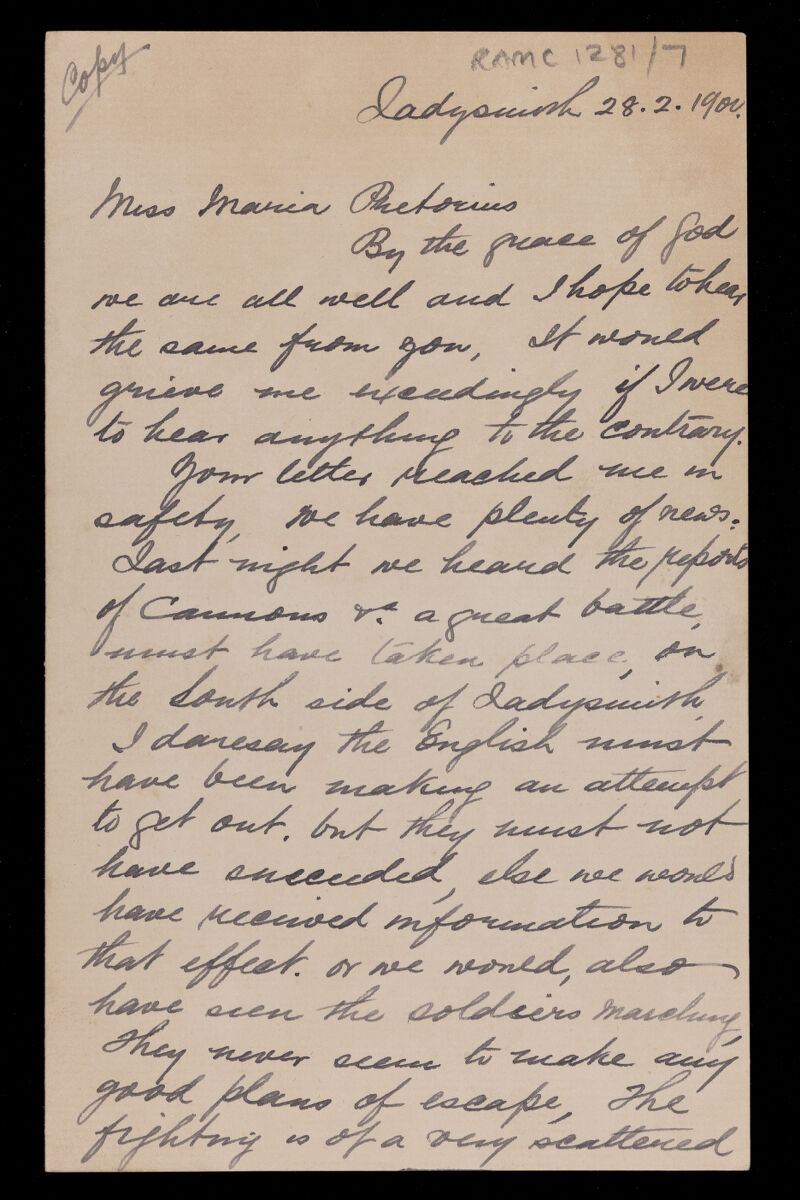 Copy
RAMC 1281/7
Ladysmith 28.2.1900.
Miss Maria Pretorius
By the grace of God
we are all well and I hope to hear
the same from you, It would
grieve me exceedingly if I were
to hear anything to the contrary.
Your letter reached me in
safety, we have plenty of news.
Last night we heard the reports
of Cannons &c. a great battle,
must have taken place, on
the South side of Ladysmith,
I daresay the English must
have been making an attempt
to get out. but they must not
have succeeded, else we would
have received information to
that effect. or we would, also
have seen the soldiers marching,
They never seem to make any
good plans of escape, The
fighting is of a very scattered